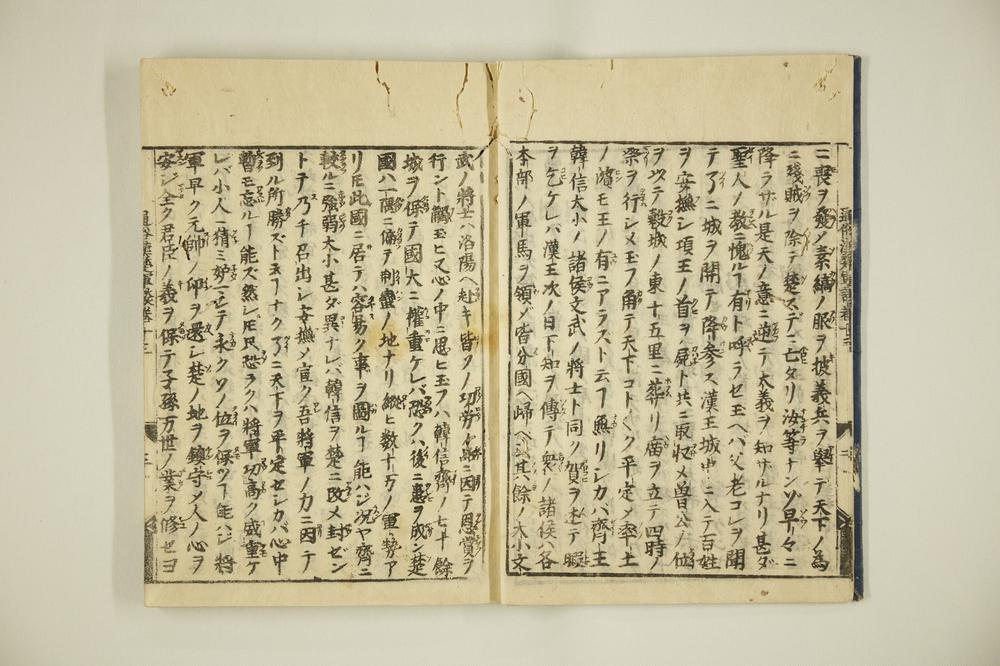 ニ喪ヲ發シ素縞ノ服ヲ披義兵ヲ擧テ天下ノ為
ニ殘賊ヲ除テ楚スデニ亡タリ汝等ナンゾ早々ニ
降ラザル是天ノ意ニ逆テ大義ヲ知ザルナリ甚ダ
聖人ノ教ニ愧ルヿ有ト呼ラセ玉ヘバ父老コレヲ聞
テ乃ニ城ヲ開テ降参ス漢王城中ニ入テ百姓
ヲ安撫シ項王ノ首ヲ屍ト共ニ取収メ魯公ノ位
ヲ以テ穀城ノ東十五里ニ葬リ廟ヲ立テ四時ノ
祭ヲ行シメ玉フ角テ天下コト〴〵ク平定メ率土
ノ濱モ王ノ有ニアラズト云ヿ無リシカバ齊王
韓信大小ノ諸侯文武ノ將士ト同ク賀ヲ述テ暇
ヲ乞ケレバ漢王次ノ日下知ヲ傳テ衆ノ諸侯ハ各
本部ノ軍馬ヲ領メ皆分國ヘ歸ベシ其餘ノ大小文
武ノ將士ハ洛陽ヘ赴キ皆ソノ功勞ニ因テ恩賞ヲ
行ント觸玉ヒ又心ノ中ニ思ヒ玉フハ韓信齊ノ七十餘
城ヲ保テ國大ニ權重ケレバ恐クハ後ニ患ヲ成ン楚
國ハ一隅ニ偏テ荊蠻ノ地ナリ縱ヒ数十万ノ軍勢ア
リ𪜈此國ニ居テハ容易ク事ヲ圖ルヿ能ハジ况ヤ齊ニ
較ルニ強弱大小甚ダ異ナレバ韓信ヲ楚ニ改メ封ゼン
トテ乃チ召出シ安撫メ宣ク吾將軍ノ力ニ因テ
到ル所勝ズト云ヿナク乃ニ天下ヲ平定センカバ心中
暫モ忘ルヿ能ズ然レ𪜈恐ラクハ將軍功高ク威重ケ
レバ小人ノ猜ミ妬ニテ永クソノ位ヲ保ツヿ能ハジ將
軍早ク元帥ノ印ヲ還シ楚ノ地ヲ鎮守メ人ノ心ヲ
安ジ全ク君臣ノ義ヲ保テ子孫万世ノ業ヲ修セヨ